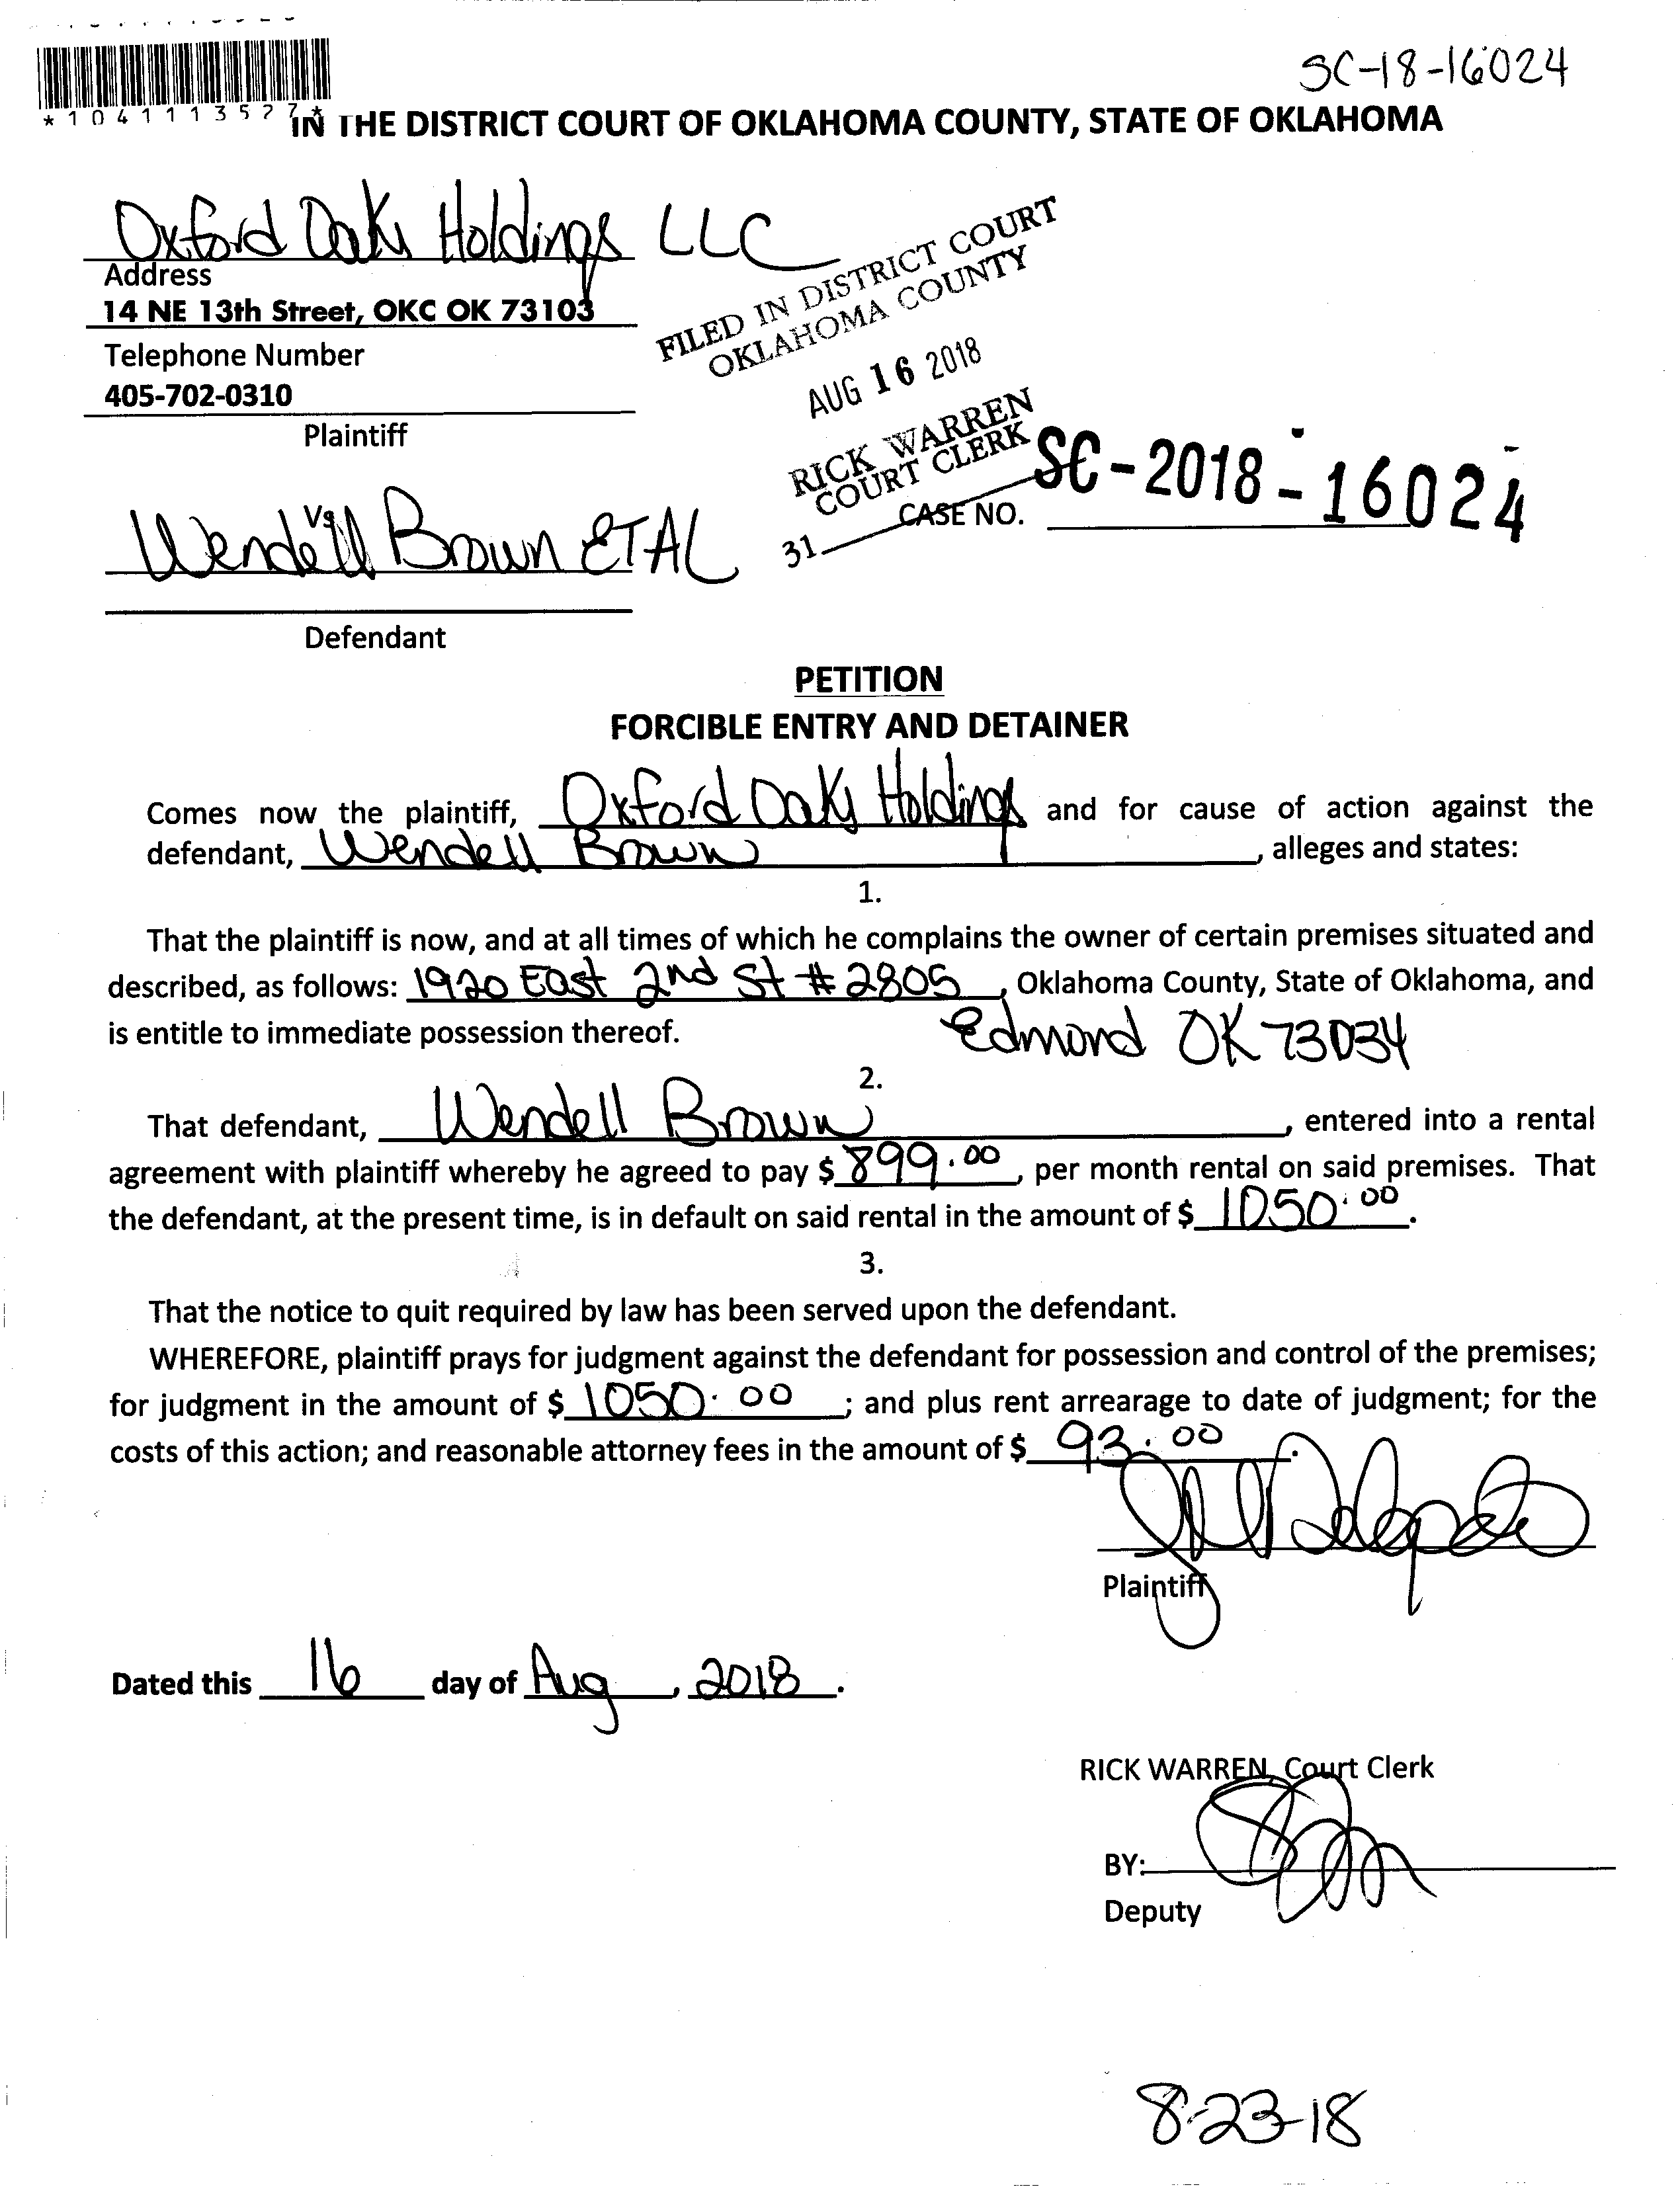 SC-18-16024
*1041113527*
IN THE DISTRICT COURT OF OKLAHOMA COUNTY, STATE OF OKLAHOMA
Oxford Oaks Holdings LLC
Address
14 NE 13th Street, OKC OK 73103
Telephone Number
405-702-0310
Plaintiff
FILED IN DISTRICT COURT
OKLAHOMA COUNTY
AUG 16 2018
RICK WARREN
COURT CLERK
31
CASE NO. SC-2018-16024
Vs
Wendell Brown ETAL
Defendant
PETITION
FORCIBLE ENTRY AND DETAINER
Comes now the plaintiff, Oxford Oaks Holdings and for cause of action against the
defendant, Wendell Brown, alleges and states:
1.
That the plaintiff is now, and at all times of which he complains the owner of certain premises situated and
described, as follows: 1920 East 2nd St # 2805, Oklahoma County, State of Oklahoma, and
is entitle to immediate possession thereof. Edmond OK 73034
2.
That defendant, Wendell Brown, entered into a rental
agreement with plaintiff whereby he agreed to pay $ 899.00, per month rental on said premises. That
the defendant, at the present time, is in default on said rental in the amount of $ 1050.00.
3.
That the notice to quit required by law has been served upon the defendant.
WHEREFORE, plaintiff prays for judgment against the defendant for possession and control of the premises;
for judgment in the amount of $ 1050.00; and plus rent arrearage to date of judgment; for the
costs of this action; and reasonable attorney fees in the amount of $ 93.00.
Plaintiff
Dated this 16 day of Aug, 2018.
RICK WARREN, Court Clerk
BY:
Deputy
8-23-18